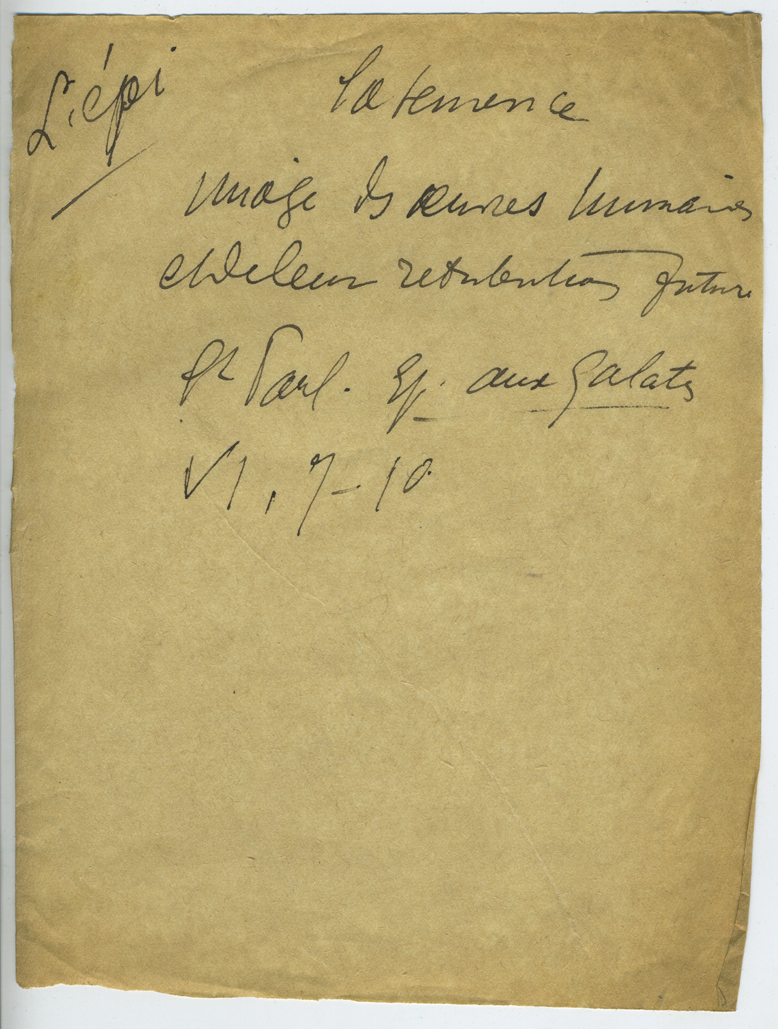 L'épi
la semence
image des œuvres humaines
et de leur rétribution future
St Paul. Ep. aux Galates
VI, 7-10